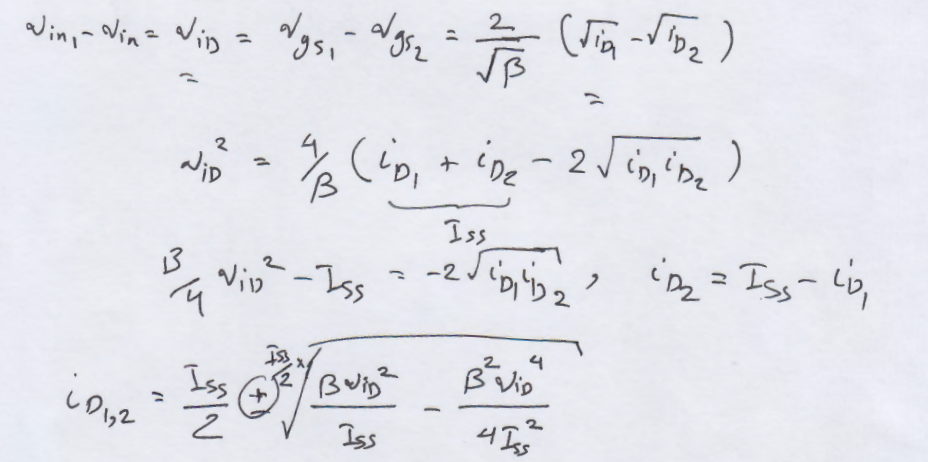 v_{in_1} - v_{in} = v_{iD} = v_{gs_1} - v_{gs_2} = \frac{2}{\sqrt{β}} (\sqrt{i_{D_1}} - \sqrt{i_{D_2}})
v_{iD}^2 = 4/β (i_{D_1} + i_{D_2} - 2\sqrt{i_{D_1} i_{D_2}})
I_{SS}
β/4 v_{iD}^2 - I_{SS} = -2\sqrt{i_{D_1} i_{D_2}}, i_{D_2} = I_{SS} - i_{D_1}
i_{D_{1,2}} = \frac{I_{SS}}{2} ± \frac{I_{SS}}{2} × \sqrt{\frac{β v_{iD}^2}{I_{SS}} - \frac{β^2 v_{iD}^4}{4 I_{SS}^2}}